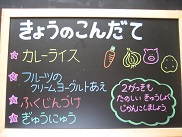 きょうのこんだて
カレーライス
フルーツの
クリームヨーグルトあえ
ふくじんづけ
ぎゅうにゅう
2がっきも
たのしい きゅうしょく
じかんにしましょう